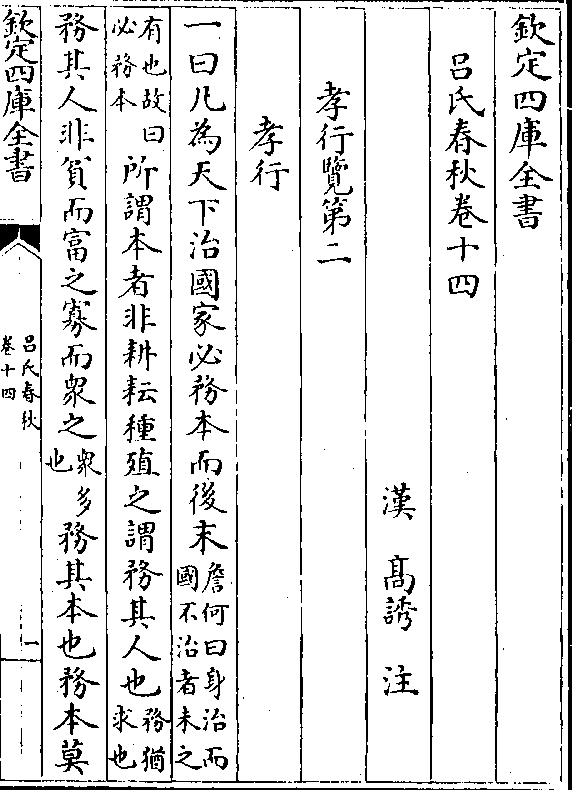 欽定四庫全書
呂氏春秋卷十四
漢　高誘　注
孝行覽第二
孝行
一曰凡為天下治國家必務本而後末詹何曰身治而國不治者未之
有也故曰必務本所謂本者非耕耘種殖之謂務其人也務猶求也
務其人非貧而富之寡而衆之衆多也務其本也務本莫
欽定四庫全書
呂氏春秋
卷十四
一